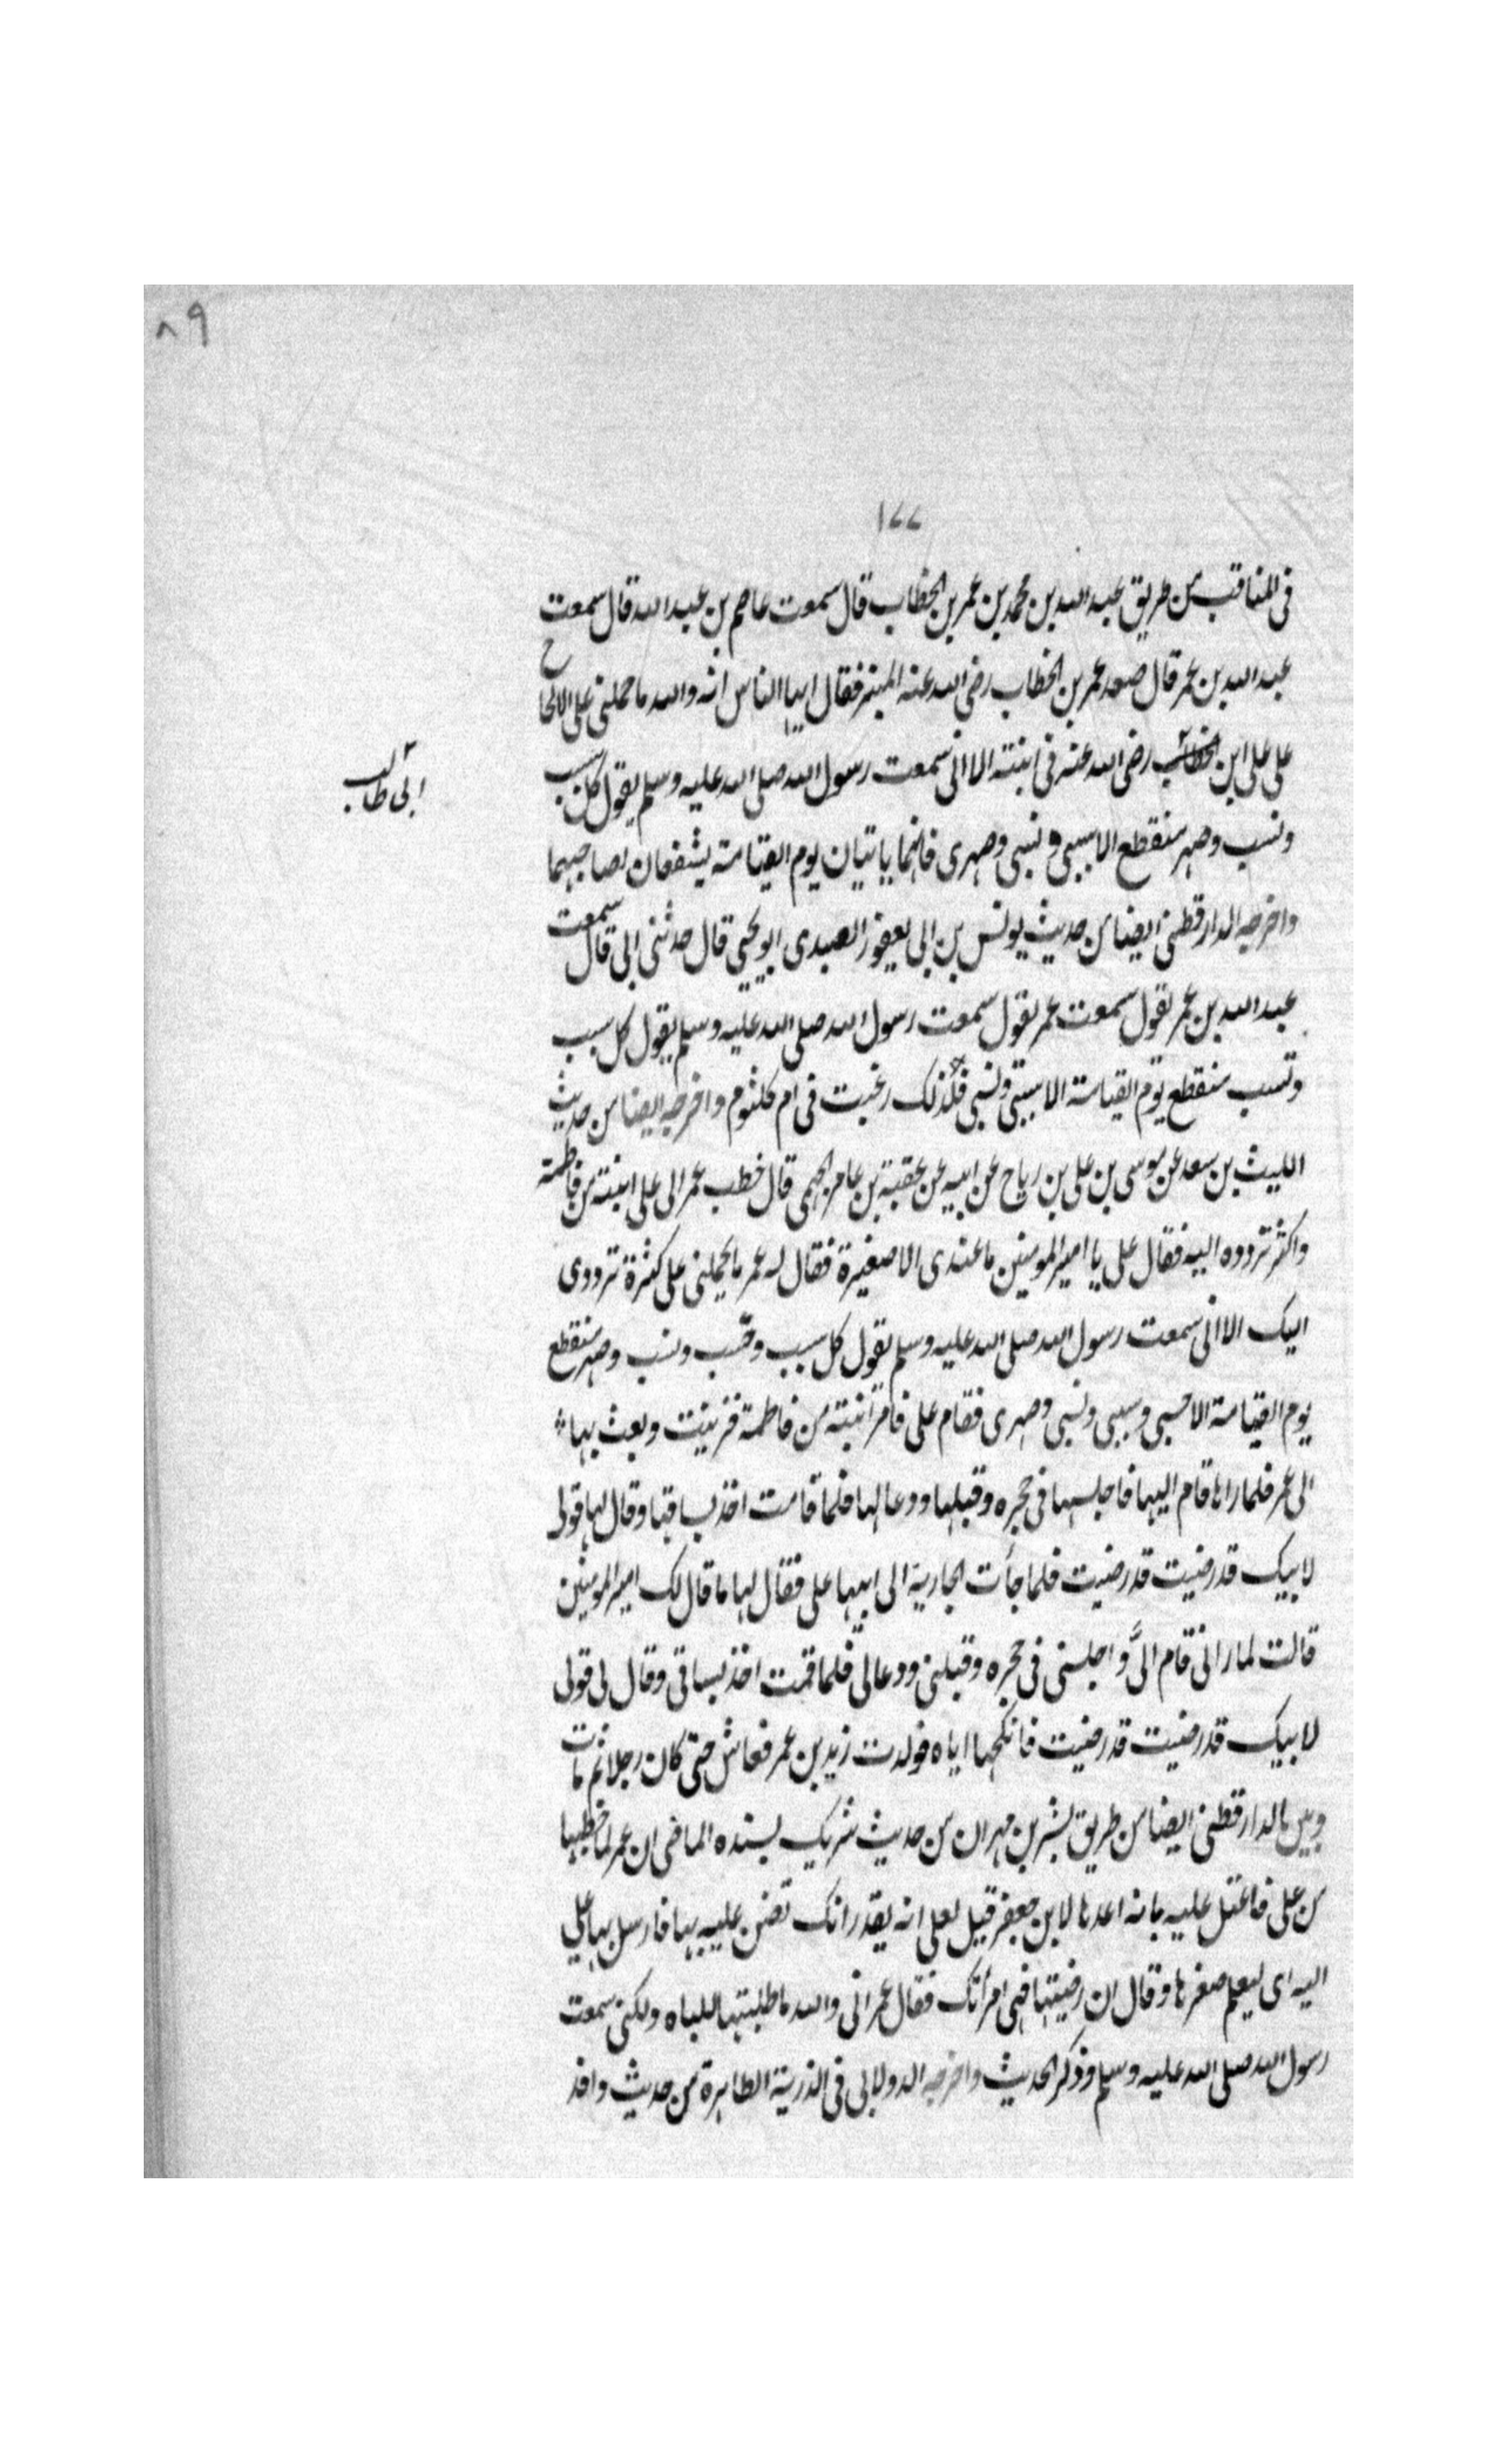 ٨٩
١٧٧
فى المناقب من طريق عبد الله بن محمد بن عمر بن الخطاب قال سمعت عاصم بن عبد الله قال سمعت
عبد الله بن عمر قال صعد عمر بن الخطاب رضى الله عنه المنبر فقال ايها الناس انه والله ما حملنى على الالحاح
على على ابن الخطاب رضى الله عنه فى ابنته الا انى سمعت رسول الله صلى الله عليه وسلم يقول كل سبب
ابى طالب
ونسب وصهر منقطع الا سببى ونسبى وصهرى فانهما ياتيان يوم القيامة يشفعان لصاحبهما
واخرجه الدارقطنى ايضا من حديث يونس بن ابى يعفور العبدى ابو يحيى قال حدثنى ابى قال سمعت
عبد الله بن عمر يقول سمعت عمر يقول سمعت رسول الله صلى الله عليه وسلم يقول كل سبب
ونسب منقطع يوم القيامة الا سببى ونسبى فلذلك رغبت فى ام كلثوم واخرجه ايضا من حديث
الليث بن سعد عن موسى بن على بن رباح عن ابيه عن عقبة بن عامر الجهى قال خطب عمر الى على ابنته من فاطمة
واكثر تردده اليه فقال على يا امير المومنين ما عندى الا صغيرة فقال له عمر ما يحملنى على كثرة ترددى
اليك الا انى سمعت رسول الله صلى الله عليه وسلم يقول كل سبب وحسب ونسب وصهر منقطع
يوم القيامة الا حسبى وسببى ونسبى وصهرى فقام على فامر ابنته من فاطمة فزينت وبعث بها
الى عمر فلما راها قام اليها فاجلسها فى حجره وقبلها ودعا لها فلما قامت اخذ بساقها وقال لها قولى
لابيك قد رضيت قد رضيت فلما جأت الجارية الى ابيها على فقال لها ما قال لك امير المومنين
قالت لما رانى قام الىَّ واجلسنى فى حجره وقبلنى ودعا لى فلما قمت اخذ بساقى وقال لى قولى
لابيك قد رضيت قد رضيت فانكحها اياه فولدت زيد بن عمر فعاش حتى كان رجلا ثم مات
وبين الدارقطنى ايضا من طريق بشر بن مهران من حديث شريك بسنده الماضى ان عمر لما خطبها
من على فاعتل عليه بانه اعدها لابن جعفر قيل لعلى انه يقدر انك تضن عليه بها فارسل بها على
اليه اى ليعلم صغرها وقال ان رضيتها فهى امرأتك فقال عمر انى والله ما طلبتها للباه ولكنى سمعت
رسول الله صلى الله عليه وسلم وذكر الحديث واخرجه الدولابى فى الذرية الطاهرة من حديث واقد